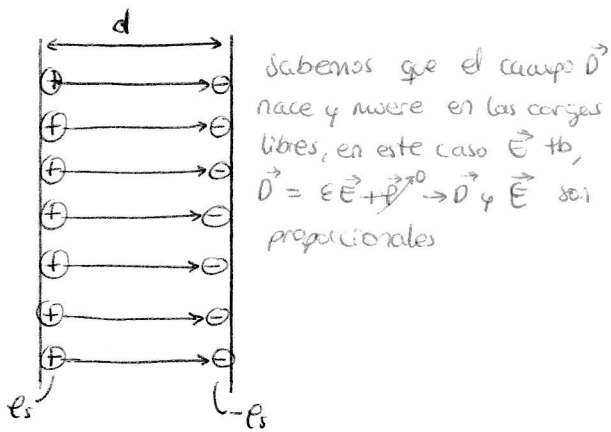 d
Sabemos que el campo D⃗
nace y muere en las cargas
libres, en este caso E⃗ tb,
D⃗ = εE⃗ + P⃗↗0 → D⃗ y E⃗ son
proporcionales
+ −
+ −
+ −
+ −
+ −
+ −
+ −
ρs -ρs